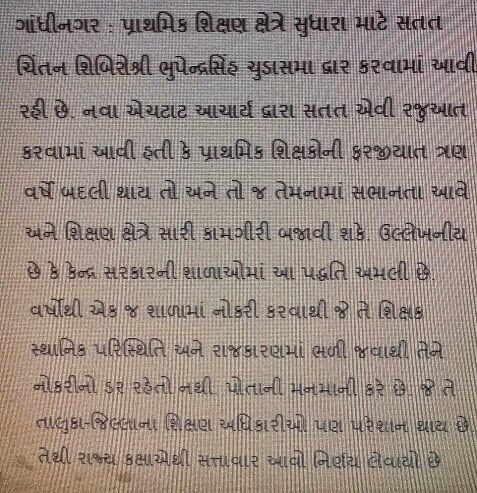 ગાંધીનગર : પ્રાથમિક શિક્ષણ ક્ષેત્રે સુધારા માટે સતત
ચિંતન શિબિરોશ્રી ભુપેન્દ્રસિંહ ચુડાસમા દ્વાર કરવામાં આવી
રહી છે. નવા એચટાટ આચાર્ય દ્વારા સતત એવી રજુઆત
કરવામાં આવી હતી કે પ્રાથમિક શિક્ષકોની ફરજીયાત ત્રણ
વર્ષે બદલી થાય તો અને તો જ તેમનામાં સભાનતા આવે
અને શિક્ષણ ક્ષેત્રે સારી કામગીરી બજાવી શકે. ઉલ્લેખનીય
છે કે કેન્દ્ર સરકારની શાળાઓમાં આ પદ્ધતિ અમલી છે.
વર્ષોથી એક જ શાળામાં નોકરી કરવાથી જે તે શિક્ષક
સ્થાનિક પરિસ્થિતિ અને રાજકારણમાં ભળી જવાથી તેને
નોકરીનો ડર રહેતો નથી. પોતાની મનમાની કરે છે. જે તે
તાલુકા-જિલ્લાના શિક્ષણ અધિકારીઓ પણ પરેશાન થાય છે.
તેથી રાજ્ય કક્ષાએથી સત્તાવાર આવો નિર્ણય લેવાયો છે